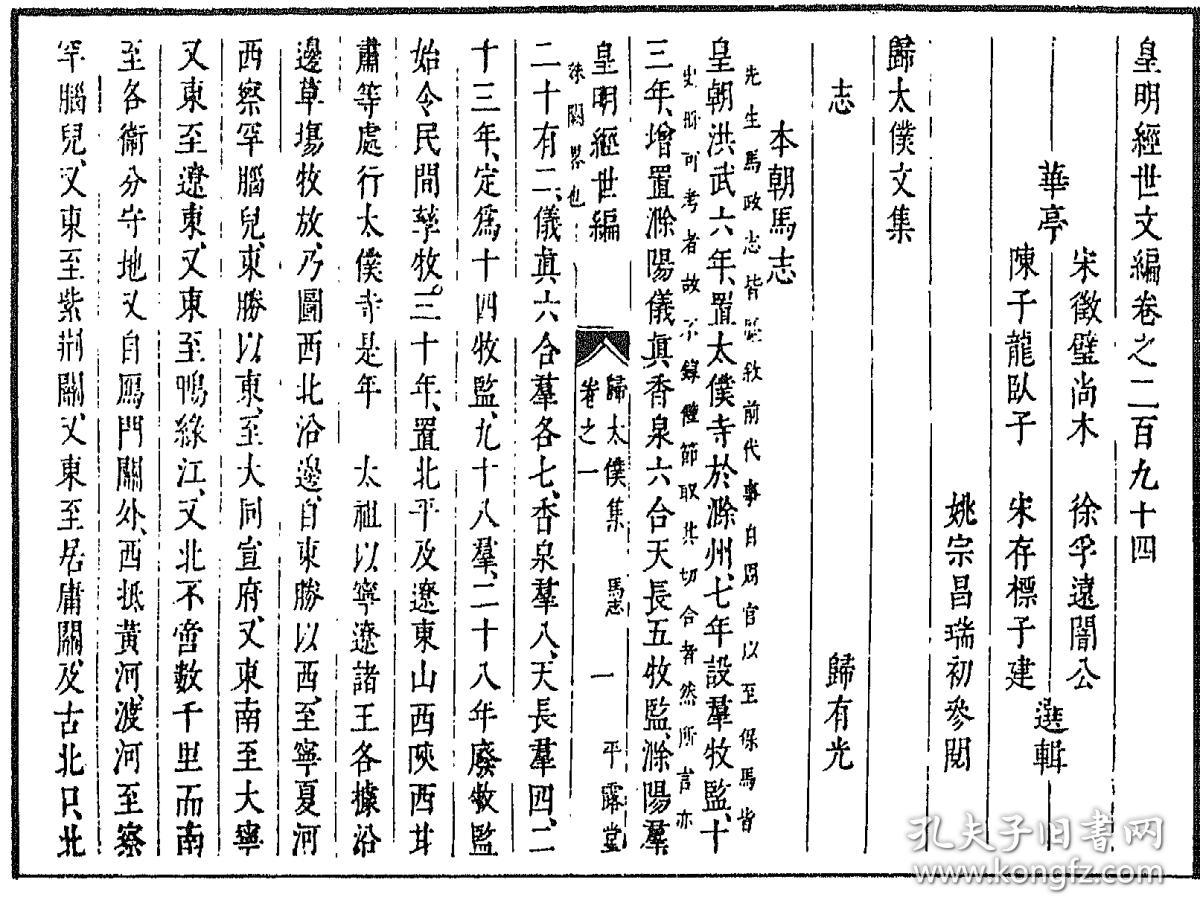 皇明經世文編卷之二百九十四
華亭
宋徵璧尚木
徐孚遠闇公
陳子龍臥子
宋存標子建
選輯
姚宗昌瑞初參閱
歸太僕文集
志
歸有光
本朝馬志
先生馬政志皆敘前代事自周官以至保馬皆
史冊可考者故不錄僅節取其切合者然所言亦
皇朝洪武六年、置太僕寺於滁州、七年設羣牧監、十
三年、增置滁陽儀眞香泉六合天長五牧監、滁陽羣
皇明經世編
歸太僕集 馬志
卷之一
一
平露堂
殊闊畧也
二十有二、儀眞六合羣各七、香泉羣八、天長羣四、二
十三年、定爲十四牧監、九十八羣、二十八年廢牧監
始令民間孳牧。三十年、置北平及遼東山西陝西甘
肅等處行太僕寺是年 太祖以寧遼諸王各據沿
邊草塲牧放、乃圖西北沿邊、自東勝以西、至寧夏河
西察罕腦兒、東勝以東、至大同宣府、又東南至大寧
又東至遼東、又東至鴨綠江、又北不啻數千里而南
至各衛分守地又自鴈門關外、西抵黃河、渡河至察
罕腦兒、又東至紫荆關、又東至居庸關、及古北口、北
孔夫子旧书网
www.kongfz.com